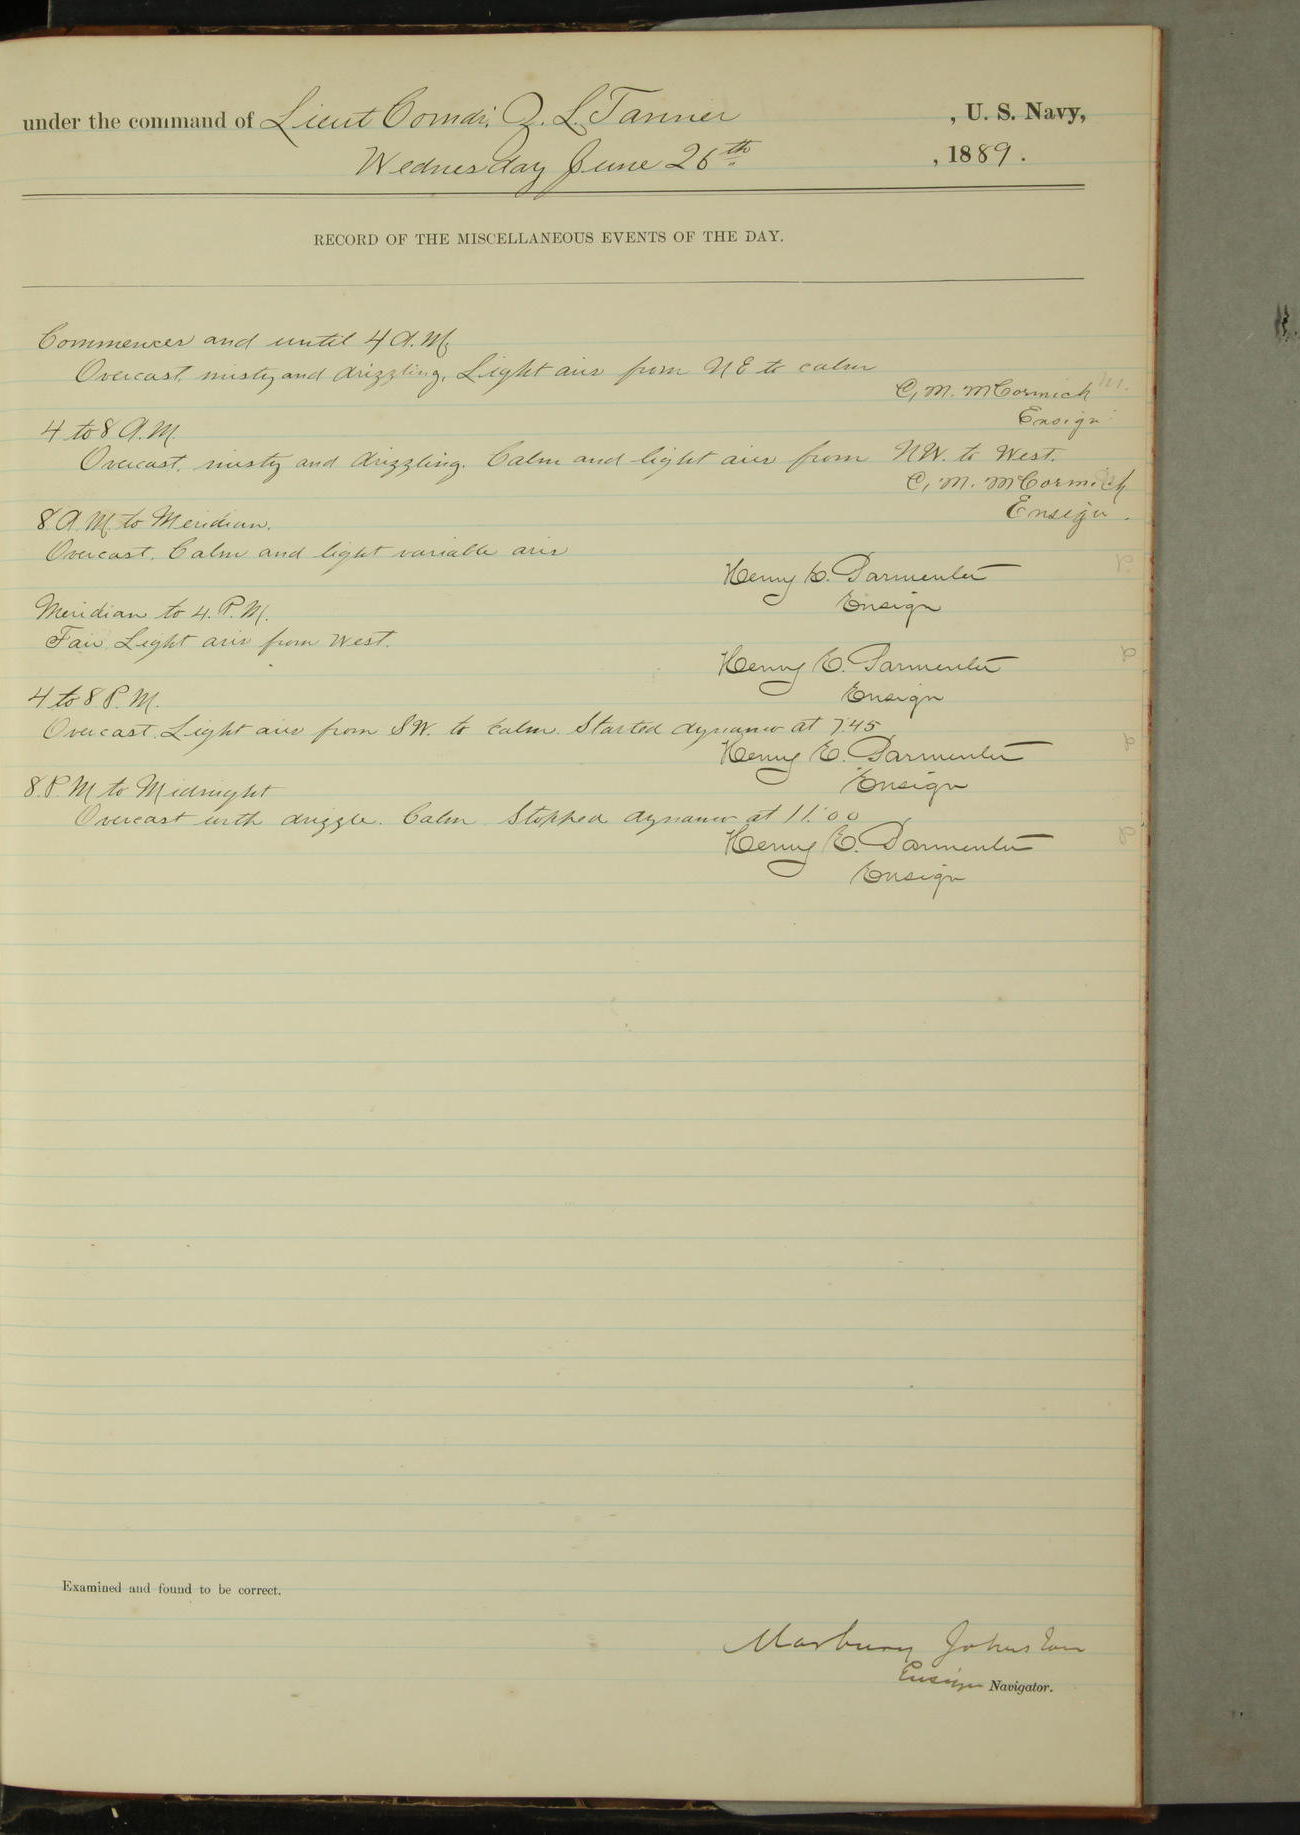 under the command of Lieut Comdr. Z. L. Tanner , U. S. Navy,
Wednesday June 26th , 1889.
RECORD OF THE MISCELLANEOUS EVENTS OF THE DAY.
Commences and until 4 A.M.
Overcast, misty and drizzling. Light airs from NE to calm
C. M. McCormick
Ensign
4 to 8 A.M.
Overcast, misty and drizzling. Calm and light airs from NW. to West.
C. M. McCormick
Ensign.
8 A.M. to Meridian.
Overcast. Calm and light variable airs
Henry E. Parmenter
Ensign
Meridian to 4. P.M.
Fair. Light airs from West.
Henry E. Parmenter
Ensign
4 to 8 P.M.
Overcast. Light airs from SW. to calm. Started dynamo at 7.45
Henry E. Parmenter
Ensign
8. P.M to Midnight
Overcast with drizzle. Calm. Stopped dynamo at 11:00
Henry E. Parmenter
Ensign
Examined and found to be correct.
Marbury Johnston
Ensign Navigator.